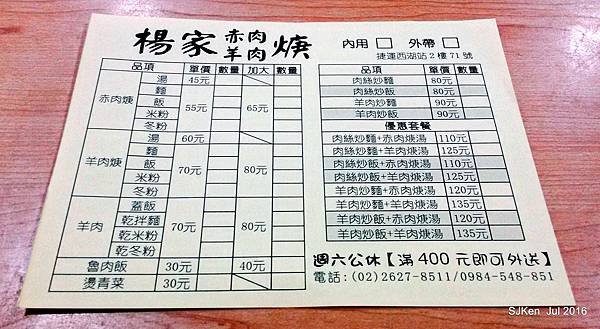 楊家 赤肉 羊肉 焿
內用 □ 外帶 □
捷運西湖站2樓71號
品項 單價 數量 加大 數量
赤肉焿 湯 45元
麵
飯 55元 65元
米粉
冬粉
羊肉焿 湯 60元
麵
飯 70元 80元
米粉
冬粉
羊肉 蓋飯
乾拌麵 70元 80元
乾米粉
乾冬粉
魯肉飯 30元 40元
燙青菜 30元
品項 單價 數量
肉絲炒麵 80元
肉絲炒飯 80元
羊肉炒麵 90元
羊肉炒飯 90元
優惠套餐
肉絲炒麵+赤肉焿湯 110元
肉絲炒麵+羊肉焿湯 125元
肉絲炒飯+赤肉焿湯 110元
肉絲炒飯+羊肉焿湯 125元
羊肉炒麵+赤肉焿湯 120元
羊肉炒麵+羊肉焿湯 135元
羊肉炒飯+赤肉焿湯 120元
羊肉炒飯+羊肉焿湯 135元
週六公休【滿400元即可外送】
電話:(02)2627-8511/0984-548-851
SJKen Jul 2016